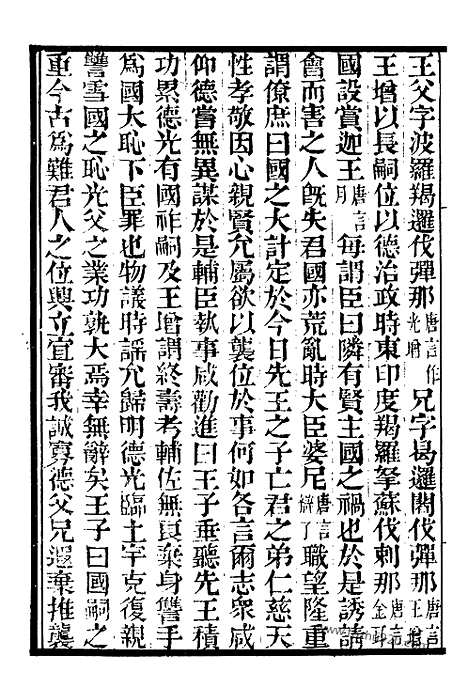 王父字波羅羯邏伐彈那唐言作光增兄字曷邏闍伐彈那唐言王增
王增以長嗣位以德治政時東印度羯羅拏蘇伐剌那唐言金耳
國設賞迦王唐言月每謂臣曰隣有賢主國之禍也於是誘請
會而害之人旣失君國亦荒亂時大臣婆尼唐言辯了職望隆重
謂僚庶曰國之大計定於今日先王之子亡君之弟仁慈天
性孝敬因心親賢允屬欲以襲位於事何如各言爾志衆咸
仰德嘗無異謀於是輔臣執事咸勸進曰王子垂聽先王積
功累德光有國祚嗣及王增謂終壽考輔佐無良棄身讐手
爲國大恥下臣罪也物議時謠允歸明德光臨土宇克復親
讐雪國之恥光父之業功孰大焉幸無辭矣王子曰國嗣之
重今古爲難君人之位興立宜審我誠寡德父兄遐棄推襲